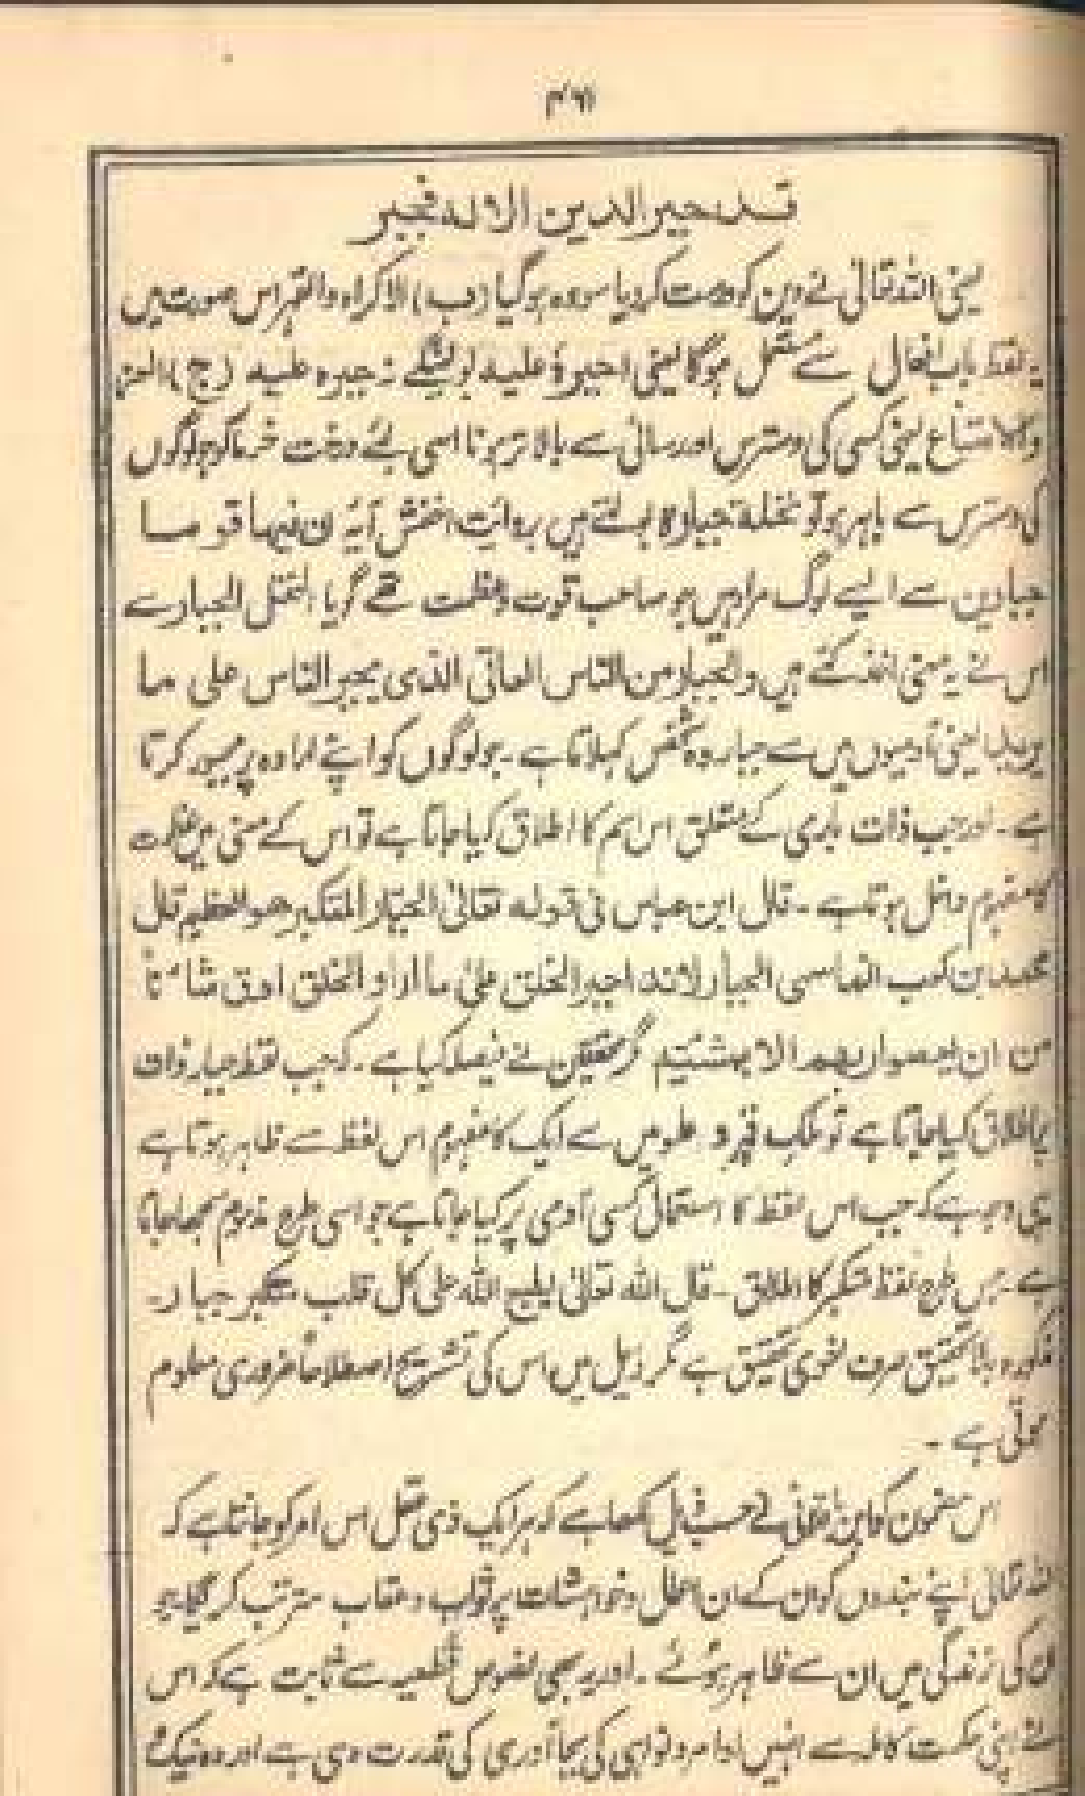 قد جبر الدین الالہ فجبر
یعنی اللہ تعالیٰ نے دین کو درست کر دیا سو وہ ہو گیا (ب) الاکراہ والقہر اس صورت میں
یہ لفظ باب افعال سے مستعمل ہوگا یعنی اجبرہٗ علیہ بولینگے نہ جبرہ علیہ (ج) العز
والامتناع یعنی کسی کی دسترس اور رسائی سے بالاتر ہونا اسی لئے درخت خرما کو جو لوگوں
کی دسترس سے باہر ہو تو نخلة جبارة بولتے ہیں بروایت اخفش آیہ ان فیہا قوما
جبارین سے ایسے لوگ مراد ہیں جو صاحب قوت و عظمت تھے گویا النخل الجبار سے
اس نے یہ معنی اخذ کئے ہیں والجبار من الناس العاتی الذی یجبر الناس علی ما
یرید یعنی آدمیوں میں سے جبار وہ شخص کہلاتا ہے۔ جو لوگوں کو اپنے ارادہ پر مجبور کرتا
ہے۔ اور جب ذات باری کے متعلق اس اسم کا اطلاق کیا جاتا ہے تو اس کے معنی میں عظمت
کا مفہوم داخل ہوتا ہے۔ قال ابن عباس فی قولہ تعالیٰ الجبار المتکبر هو العظیم قال
محمد بن کعب انما سمی الجبار لانہ اجبر الخلق علیٰ ما اراد والخلق ادق شاناً
من ان یعصوا ربهم الا بمشئیتہ مگر محققین نے فیصلہ کیا ہے۔ کہ جب لفظ جبار ذات
پر اطلاق کیا جاتا ہے تو ملک قہر و علو میں سے ایک کا مفہوم اس لفظ سے ظاہر ہوتا ہے
یہی وجہ ہے کہ جب اس لفظ کا استعمال کسی آدمی پر کیا جاتا ہے جو اسی طرح مذموم سمجھا جاتا
ہے۔ جس طرح لفظ متکبر کا اطلاق۔ قال اللہ تعالیٰ یطبع اللہ علی کل قلب متکبر جبار۔
مذکورہ بالا تحقیق صرف لغوی تحقیق ہے مگر ذیل میں اس کی تشریح اصطلاحاً ضروری معلوم
ہوتی ہے۔
اس مضمون کو ابن نے حسب ذیل لکھا ہے کہ ہر ایک ذی عقل اس امر کو جانتا ہے کہ
اللہ تعالیٰ اپنے بندوں کو ان کے ان اعمال و خواہشات پر ثواب و عقاب مترتب کر گیا جو
ان کی زندگی میں ان سے ظاہر ہوئے۔ اور یہ بھی نصوص قطعیہ سے ثابت ہے کہ اس
نے اپنی حکمت کاملہ سے انہیں اوامر و نواہی کی بجا آوری کی قدرت دی ہے اور وہ نیک